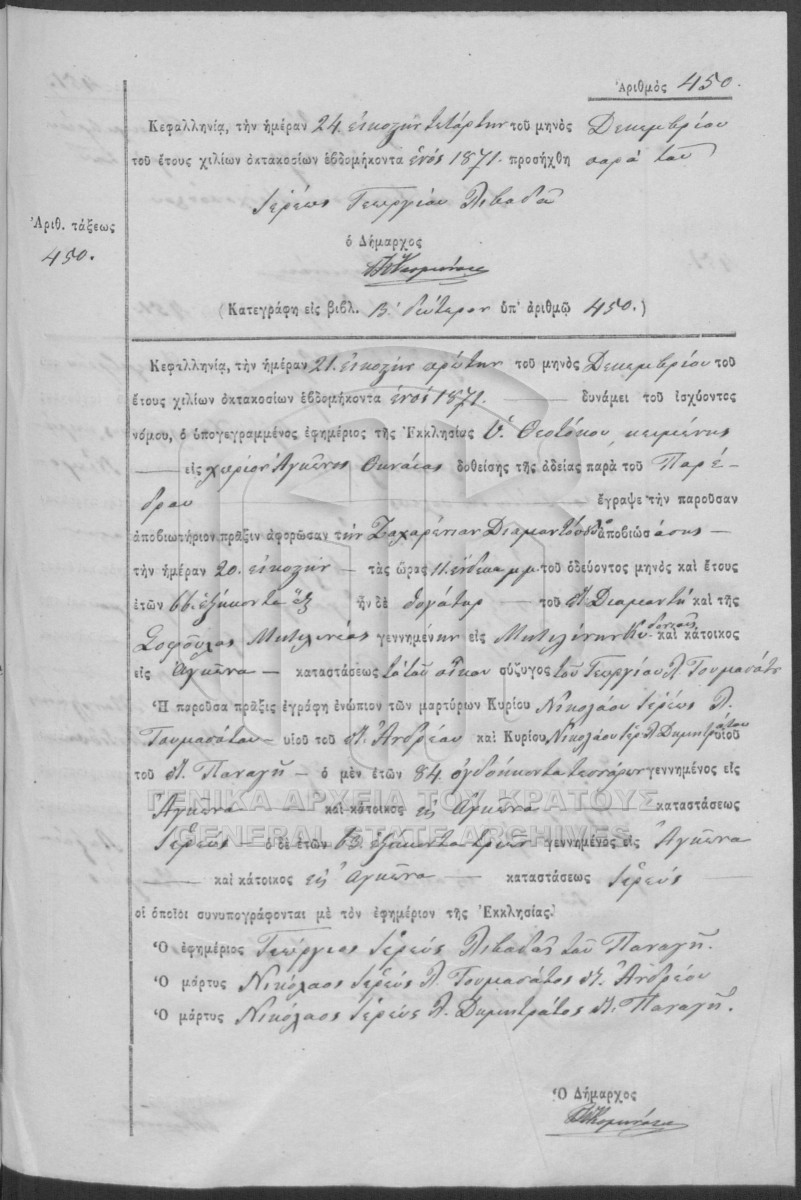 Ἀριθμὸς 450.
Κεφαλληνία, τὴν ἡμέραν 24. εἰκοστὴν τετάρτην τοῦ μηνὸς Δεκεμβρίου
τοῦ ἔτους χιλίων ὀκτακοσίων ἑβδομήκοντα ἑνός 1871. προσήχθη παρὰ τοῦ
Ἱερέως Γεωργίου Λιβαδᾶ
Ἀριθ. τάξεως
450.
ὁ Δήμαρχος
(Κατεγράφη εἰς βιβλ. Β΄ δεύτερον ὑπ' ἀριθμῷ 450.)
Κεφαλληνία, τὴν ἡμέραν 21. εἰκοστὴν πρώτην τοῦ μηνὸς Δεκεμβρίου τοῦ
ἔτους χιλίων ὀκτακοσίων ἑβδομήκοντα ἑνός 1871. δυνάμει τοῦ ἰσχύοντος
νόμου, ὁ ὑπογεγραμμένος ἐφημέριος τῆς Ἐκκλησίας Ὑ. Θεοτόκου, κειμένης
εἰς χωρίον Ἀγκῶνος Θηναίας δοθείσης τῆς ἀδείας παρὰ τοῦ Παρέ-
δρου ἔγραψε τὴν παροῦσαν
ἀποβιωτήριον πρᾶξιν ἀφορῶσαν τὴν Ζαχαρένιαν ἀποβιώσασης
τὴν ἡμέραν 20. εἰκοστὴν τὰς ὥρας 11. ἕνδεκα μ.μ. τοῦ ὁδεύοντος μηνὸς καὶ ἔτους
ἐτῶν 66. ἑξήκοντα ἓξ ἦν δὲ θυγάτηρ τοῦ π. Διαμαντῆ καὶ τῆς
Σοφούλας Μιτιλινέας γεννημένην εἰς Μιτιλίνην καὶ κάτοικος
εἰς Ἀγκῶνα καταστάσεως τὰ τοῦ οἴκου σύζυγος τοῦ Γεωργίου Λ. Τουμασάτου
Ἡ παροῦσα πρᾶξις ἐγράφη ἐνώπιον τῶν μαρτύρων Κυρίου Νικολάου Ἱερέως Λ.
Τουμασάτου υἱοῦ τοῦ π. Ἀνδρέου καὶ Κυρίου Νικολάου Ἱερ. Λ. Δημητράτου υἱοῦ
τοῦ π. Παναγῆ ὁ μὲν ἐτῶν 84. ὀγδοήκοντα τεσσάρων γεννημένος εἰς
Ἀγκῶνα καὶ κάτοικος εἰς Ἀγκῶνα καταστάσεως
Ἱερεὺς ὁ δὲ ἐτῶν 63. ἑξήκοντα τριῶν γεννημένος εἰς Ἀγκῶνα
καὶ κάτοικος εἰς Ἀγκῶνα καταστάσεως Ἱερεὺς
οἱ ὁποῖοι συνυπογράφονται μὲ τὸν ἐφημέριον τῆς Ἐκκλησίας.
Ὁ ἐφημέριος Γεώργιος Ἱερεὺς Λιβαδᾶς τοῦ Παναγῆ.
Ὁ μάρτυς Νικόλαος Ἱερεὺς Λ. Τουμασάτος π. Ἀνδρέου
Ὁ μάρτυς Νικόλαος Ἱερεὺς Λ. Δημητράτος π. Παναγῆ.
Ὁ Δήμαρχος
ΓΕΝΙΚΑ ΑΡΧΕΙΑ ΤΟΥ ΚΡΑΤΟΥΣ
GENERAL STATE ARCHIVES